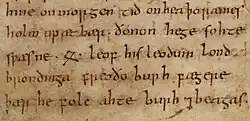 hine on morgen tid on heaþo ræmes
holm up æt bær. ðonon he ge sohte
swæsne .ᛟ. leof his leodum lond
brondinga freoðo burh fægere
þær he folc ahte burh ⁊ beagas.